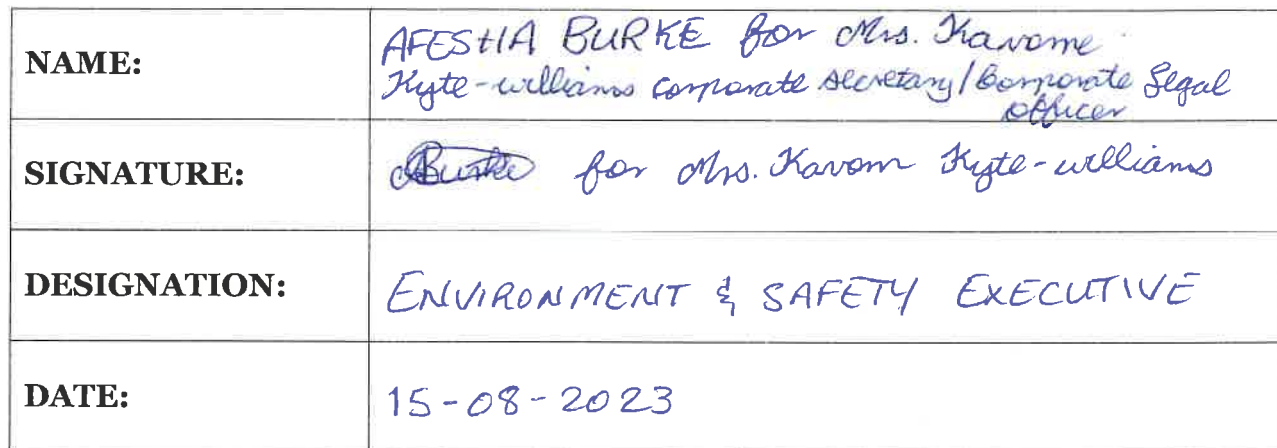 NAME:
AFESHA BURKE for Mrs. Kavome
Kyte-williams corporate secretary/Corporate Legal
officer
SIGNATURE:
ABurke for Mrs. Kavom Kyte-williams
DESIGNATION:
ENVIRONMENT & SAFETY EXECUTIVE
DATE:
15-08-2023